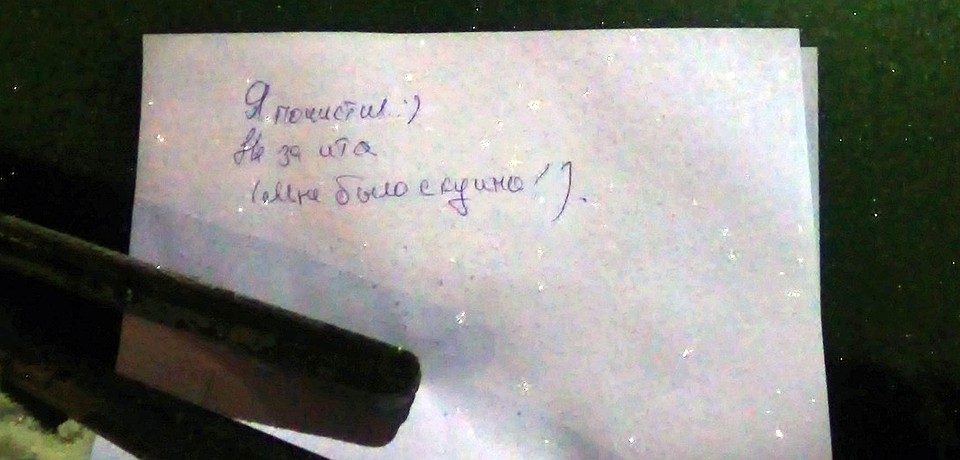 Я почистил :)
Не за ита
(Мне было скучно!).